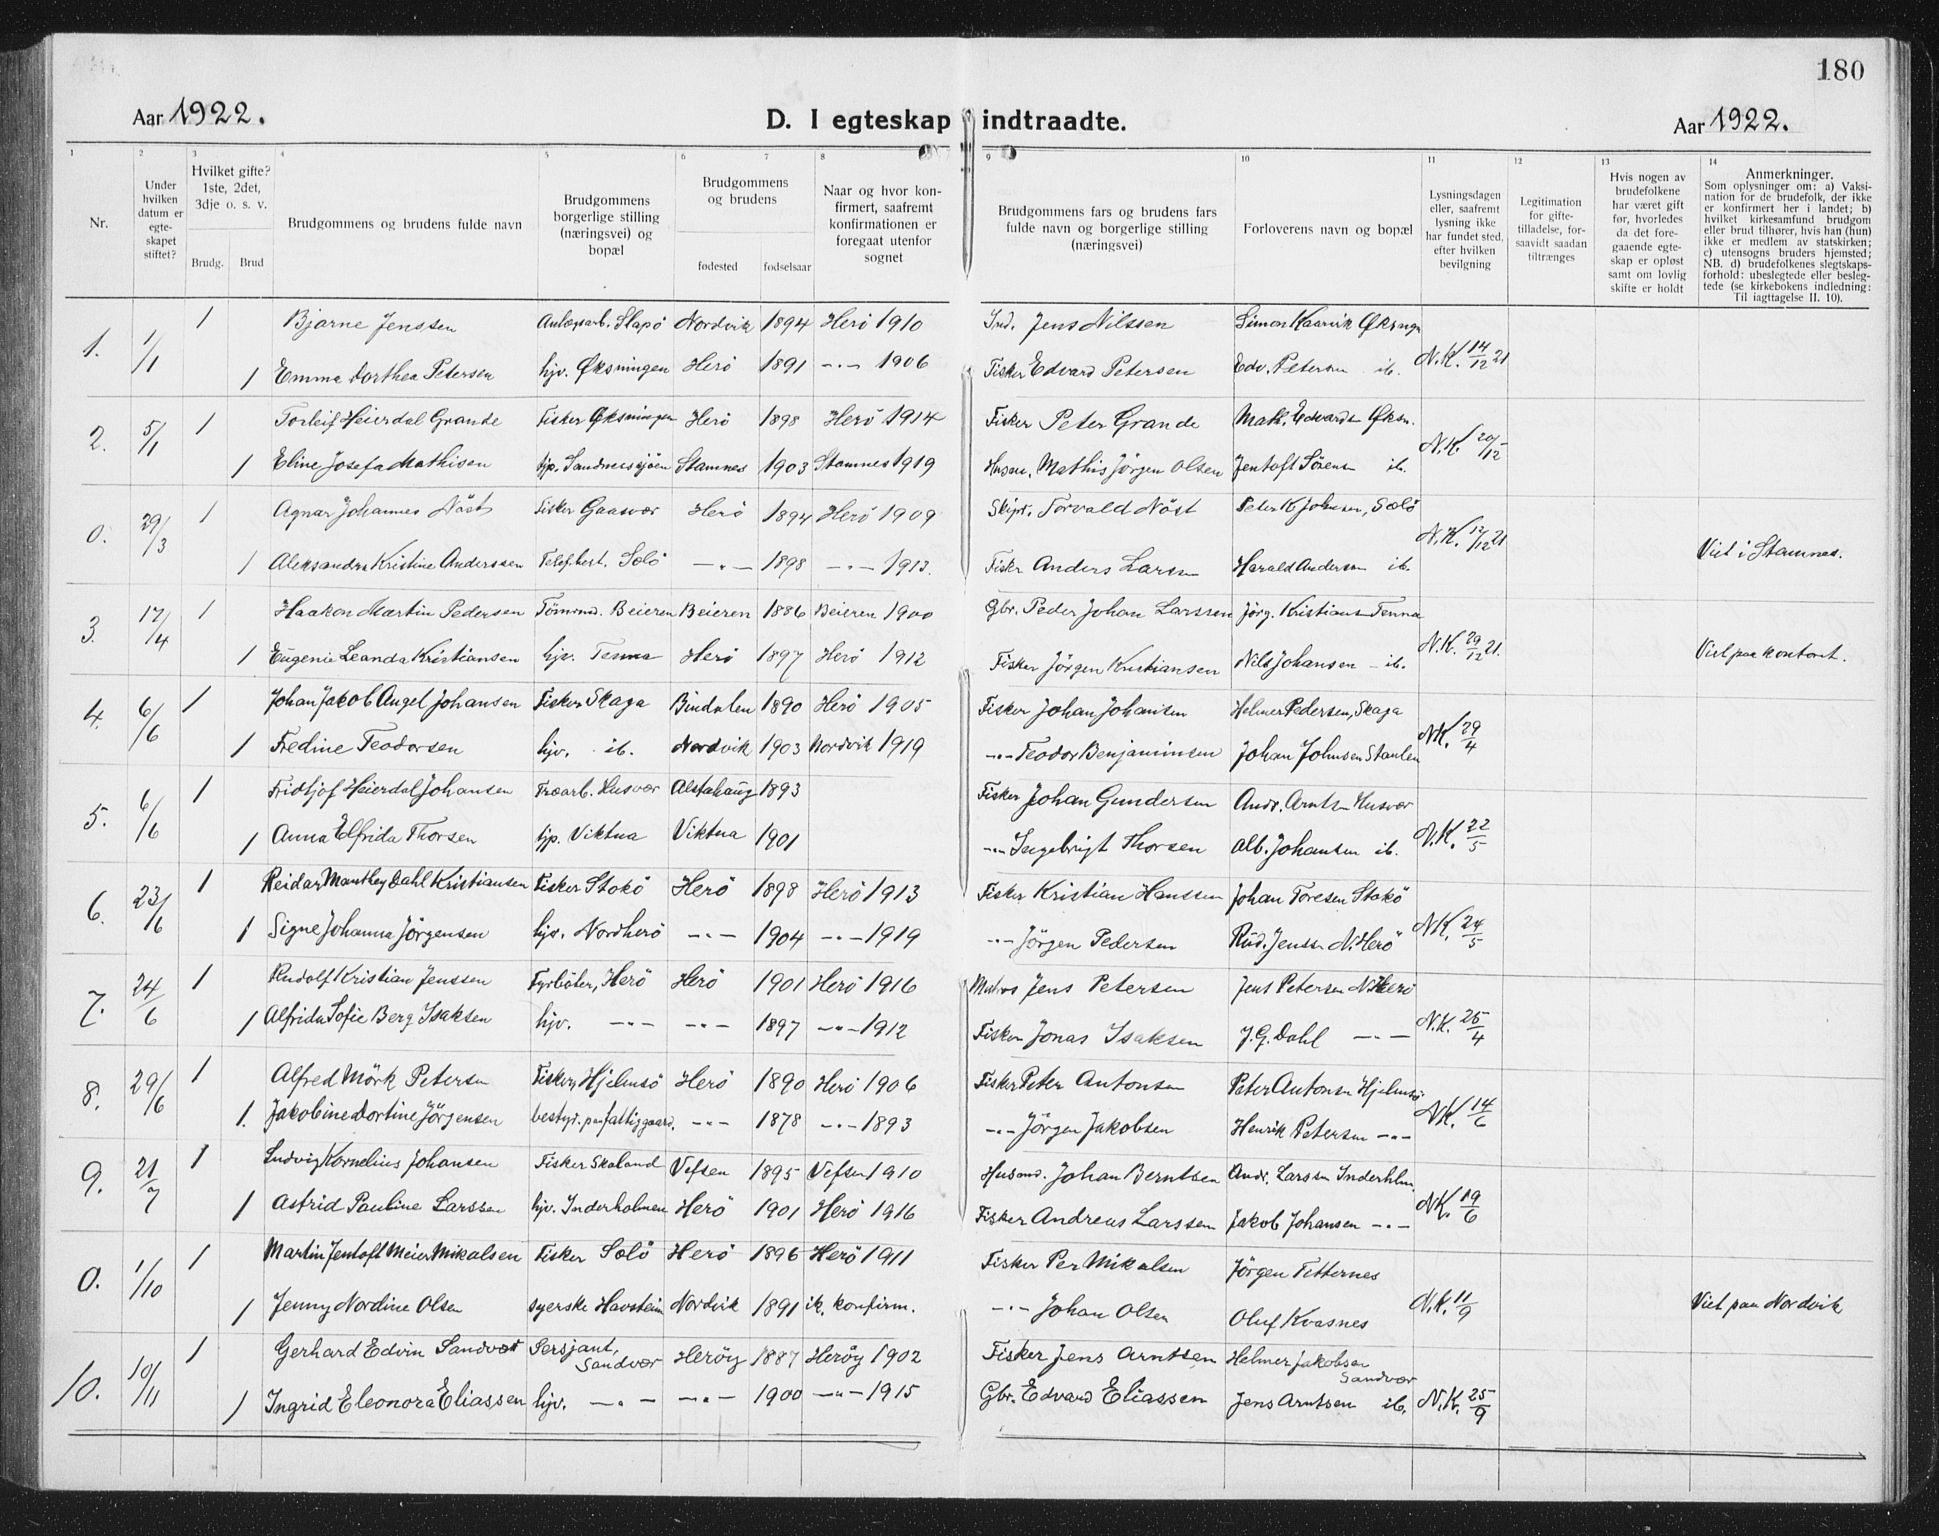 180
Aar 1922. D. I egteskap indtraadte. Aar 1922.
1 2 3 4 5 6 7 8 9 10 11 12 13 14
Nr.
Under hvilken datum er egte-skapet stiftet?
Hvilket gifte? 1ste, 2det, 3dje o. s. v.
Brudg. Brud
Brudgommens og brudens fulde navn
Brudgommens borgerlige stilling (næringsvei) og bopæl
Brudgommens og brudens
fødested fødselsaar
Naar og hvor kon-firmert, saafremt konfirmationen er foregaat utenfor sognet
Brudgommens fars og brudens fars fulde navn og borgerlige stilling (næringsvei)
Forloverens navn og bopæl
Lysningsdagen eller, saafremt lysning ikke har fundet sted, efter hvilken bevilgning
Legitimation for gifte-tilladelse, for-saavidt saadan tiltrænges
Hvis nogen av brudefolkene har været gift før, hvorledes da det fore-gaaende egte-skap er opløst samt om lovlig skifte er holdt
Anmerkninger.
Som oplysninger om: a) Vaksi-nation for de brudefolk, der ikke er konfirmert her i landet; b) hvilket kirkesamfund brudgom eller brud tilhører, hvis han (hun) ikke er medlem av statskirken; c) utensogns bruders hjemsted; NB. d) brudefolkenes slegtskaps-forhold: ubeslegtede eller besleg-tede (se kirkebokens indledning: Til iagttagelse II. 10).
1. 1/1 1 Bjarne Jenssen Anlægsarb. Slapö Nordvik 1894 Herö 1910 Ind. Jens Nilssen Simon Kaarvik Øksnge N.K. 14/12 21
1 Emma Dorthea Petersen hjv. Øksningen Herö 1891 -"- 1906 Fisker Edvard Petersen Edv. Petersen ib.
2. 5/1 1 Torleif Heierdal Grande Fisker Øksningen Herö 1898 Herö 1914 Fisker Peter Grande Math. Edvardsn Øksn. N.K. 20/12
1 Eline Josefa Mathisen hjv. Sandnessjöen Stamnes 1903 Stamnes 1919 Husm. Mathis Jörgen Olsen Jentoft Sörensn ib.
0. 29/3 1 Agnar Johannes Nöst Fisker Gaasvær Herö 1894 Herö 1909 Skipr. Torvald Nöst Peter K Johnsen, Sælö N.K. 17/12 21
1 Aleksandra Kristine Anderssen Telef.best. Sölö -"- 1898 -"- 1913. Fiskr Anders Larsn Harald Andersen ib. Viet i Stamnes.
3. 17/4 1 Haakon Martin Pedersen Tömrmd. Beieren Beieren 1886 Beieren 1900 Gbr. Peder Johan Larssen Jörg. Kristiansn Tenna N.K. 29/12 21.
1 Eugenie Leanda Kristiansen hjv. Tenna Herö 1897 Herö 1912 Fisker Jörgen Kristiansen Nils Johansen - ib. Viet paa kontoret.
4. 6/6 1 Johan Jakob Angel Johansen Fisker Skaga Bindalen 1890 Herö 1905 Fisker Johan Johansen Helmer Pedersen, Skaga N.K. 29/4
1 Fredine Teodorsen hjv. ib. Nordvik 1903 Nordvik 1919 -"- Teodor Benjaminsen Johan Johnsen Staulen
5. 6/6 1 Fridtjof Heierdal Johansen Træarb. Husvær Alstahaug 1893 Fisker Johan Gundersen Andr. Arntsn Husvær N.K. 22/5
1 Anna Elfrida Thorsen hjv. Viktna Viktna 1901 -"- Ingebrigt Thorsen Alb. Johansen ib.
6. 23/6 1 Reidar Manthey Dahl Kristiansen Fisker Stokö Herö 1898 Herö 1913 Fisker Kristian Hanssen Johan Toresen Stokö N.K. 24/5
1 Signe Johanna Jörgensen hjv. Nordherö -"- 1904 -"- 1919 -"- Jörgen Pedersen Rud. Jenssn N.Herö
7. 24/6 1 Rudolf Kristian Jenssen Fyrböter, Herö Herö 1901 Herö 1916 Matros Jens Petersen Jens Petersen N.Herö N.K. 25/4
1 Alfrida Sofie Berg Isaksen hjv. -"- -"- 1897 -"- 1912 Fisker Jonas Isaksen J.G. Dahl -"-
8. 29/6 1 Alfred Mörk Petersen Fisker, Hjelmsö Herö 1890 Herö 1906 Fisker Peter Antonsen Peter Antonsn Hjelmsö N.K. 14/6
1. Jakobine Dortine Jörgensen bestyr. paa fattiggaard. -"- 1878 -"- 1893 -"- Jörgen Jakobsen Henrik Petersen -"-
9. 21/7 1 Ludvig Kornelius Johansen Fisker Skaland Vefsen 1895 Vefsen 1910 Husmd. Johan Berntsen Andr. Larssn Inderhlm. N.K. 19/6
1 Astrid Pauline Larssen hjv. Inderholmen Herö 1901 Herö 1916 Fisker Andreas Larssen Jakob Johansen -"-
0. 1/10 1 Martin Jentoft Meier Mikalsen Fisker Sölö Herö 1896 Herö 1911 Fisker Per Mikalsen Jörgen Titternes N.K. 11/9
1 Jenny Nordine Olsen syerske Havstein Nordvik 1891 ik. konfirm. -"- Johan Olsen Oluf Kvasnes Viet paa Nordvik
10. 10/11 1 Gerhard Edvin Sandvær Sersjant, Sandvær Herøy 1887 Herøy 1902 Fisker Jens Arntsen Helmer Jakobsen Sandvær N.K. 25/9
1 Ingrid Eleonora Eliassen hjv. -"- -"- 1900 -"- 1915 Gbr. Edvard Eliassen Jens Arntsen ib.